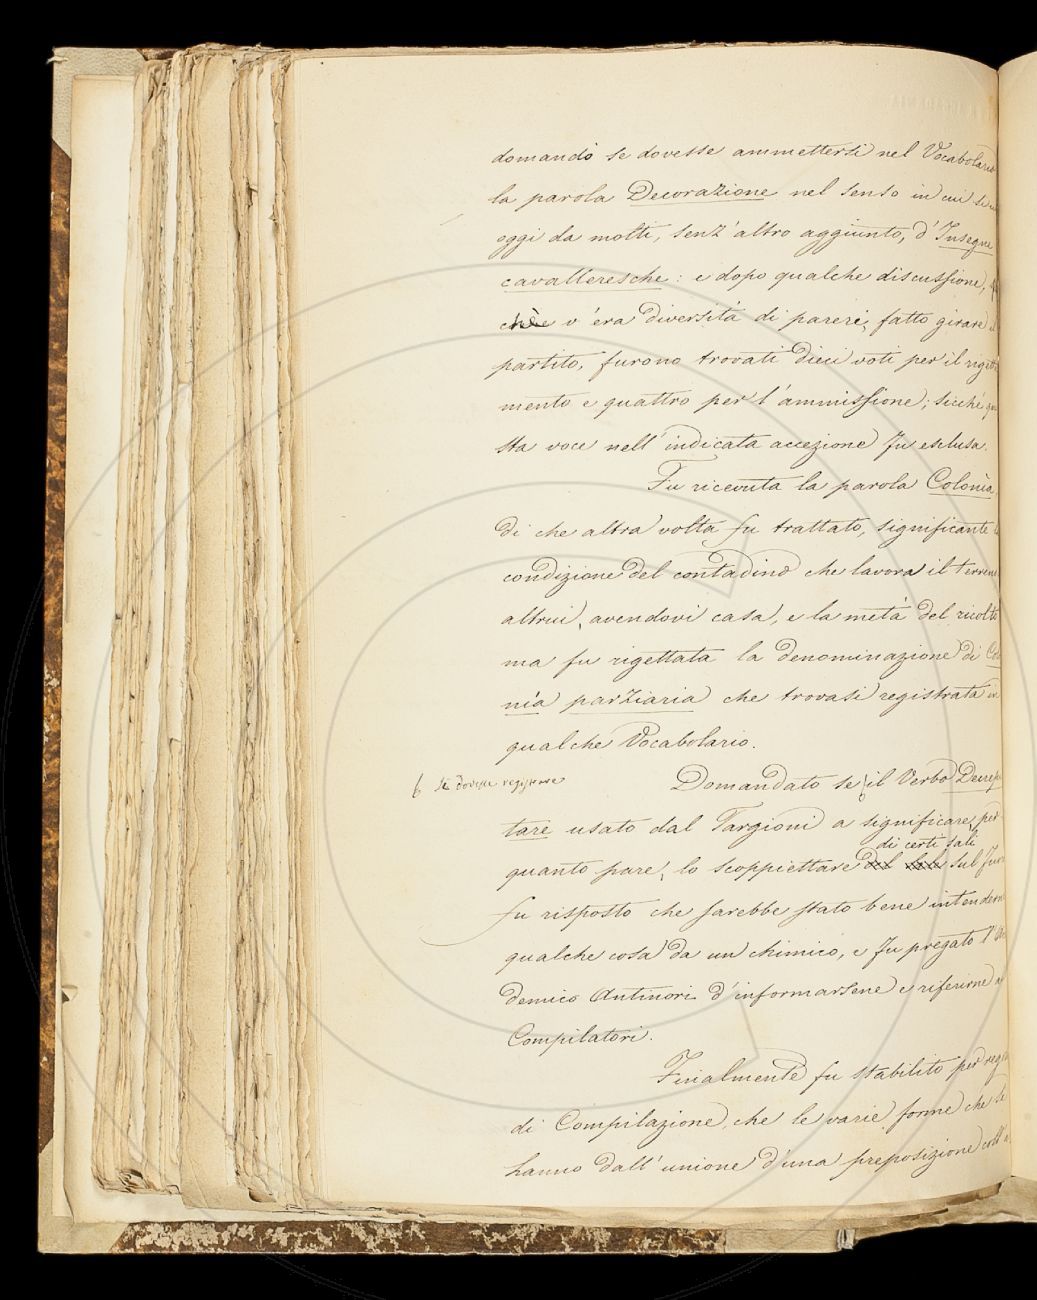 domandò se dovesse ammettersi nel Vocabolario
la parola Decorazione nel senso in cui si
oggi da molti, senz'altro aggiunto, d'Insegne
cavalleresche: e dopo qualche discussione,
chè v'era diversità di pareri, fatto girare il
partito, furono trovati dieci voti per il riget
mento e quattro per l'ammissione; sicchè que
sta voce nell'indicata accezione fu esclusa.
Fu ricevuta la parola Colonìa,
di che altra volta fu trattato, significante la
condizione del contadino che lavora il terreno
altrui, avendovi casa, e la metà del ricolto
ma fu rigettata la denominazione di Colo
nìa parziaria che trovasi registrata in
qualche Vocabolario.
se dovesse registrare
Domandato se il Verbo Decrepi
tare usato dal Targioni a significare, per
di certi sali
quanto pare, lo scoppiettare del sul fuoco
fu risposto che sarebbe stato bene intenderne
qualche cosa da un chimico, e fu pregato l'Acca
demico Antinori d'informarsene e riferirne a
Compilatori.
Finalmente fu stabilito per regola
di Compilazione, che le varie forme che si
hanno dall'unione d'una preposizione coll'a